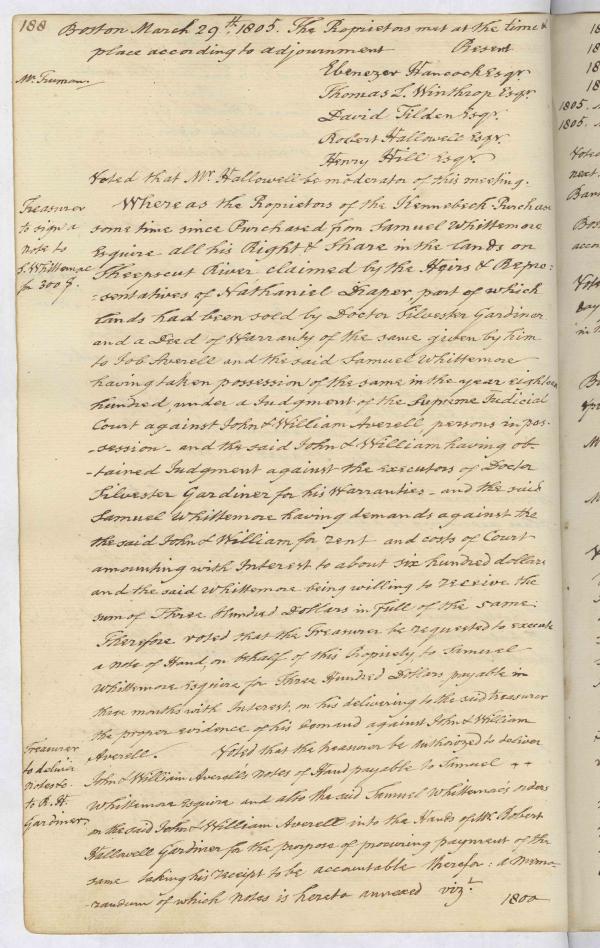 188
Boston March 29th. 1805. The Proprietors met at the time &
place according to adjournment Present
Ebenezer Hancock Esqr.
Thomas L. Winthrop Esqr.
David Tilden Esqr.
Robert Hallowell Esqr.
Henry Hill Esqr.
Voted that Mr. Hallowell be moderator of this meeting.
Treasurer
to sign a
note to
S. Whittemore
for 300 $.
Whereas the Proprietors of the Kennebeck Purchase
some time since Purchased from Samuel Whittemore
Esquire all his Right & Share in the lands on
Sheepscut River claimed by the Heirs & Repre-
-sentatives of Nathaniel Draper part of which
lands had been sold by Doctor Silvester Gardiner
and a Deed of Warranty of the same given by him
to Job Averell and the said Samuel Whittemore
having taken possession of the same in the year eighteen
hundred, under a Judgment of the Supreme Judicial
Court against John & William Averell persons in pos-
-session - and the said John & William having ob-
-tained Judgment against the Executors of Doctor
Silvester Gardiner for his Warranties - and the said
Samuel Whittemore having demands against the
the said John & William for rent and costs of Court
amounting with Interest to about six hundred dollars
and the said Whittemore being willing to receive the
sum of Three Hundred Dollars in full of the same:
Therefore voted that the Treasurer be requested to execute
a note of Hand, on behalf of this Propriety, to Samuel
Whittemore Esquire for Three Hundred Dollars payable in
three months with Interest, on his delivering to the said treasurer
the proper evidence of his Demand against John & William
Averell.
Treasurer
to deliver
notes &c.
to R. H.
Gardiner.
Voted that the treasurer be authorized to deliver
John & William Averell's notes of Hand payable to Samuel
Whittemore Esquire and also the said Samuel Whittemore's orders
on the said John & William Averell into the Hands of Mr. Robert
Hallowell Gardiner for the purpose of procuring payment of the
same taking his receipt to be accountable therefor: a memo-
-randum of which notes is hereto annexed vizt.
1800